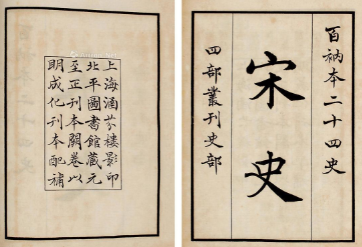 百衲本二十四史
宋史
四部叢刊史部
上海涵芬樓影印
北平圖書館藏元
至正刊本闕卷以
明成化刊本配補